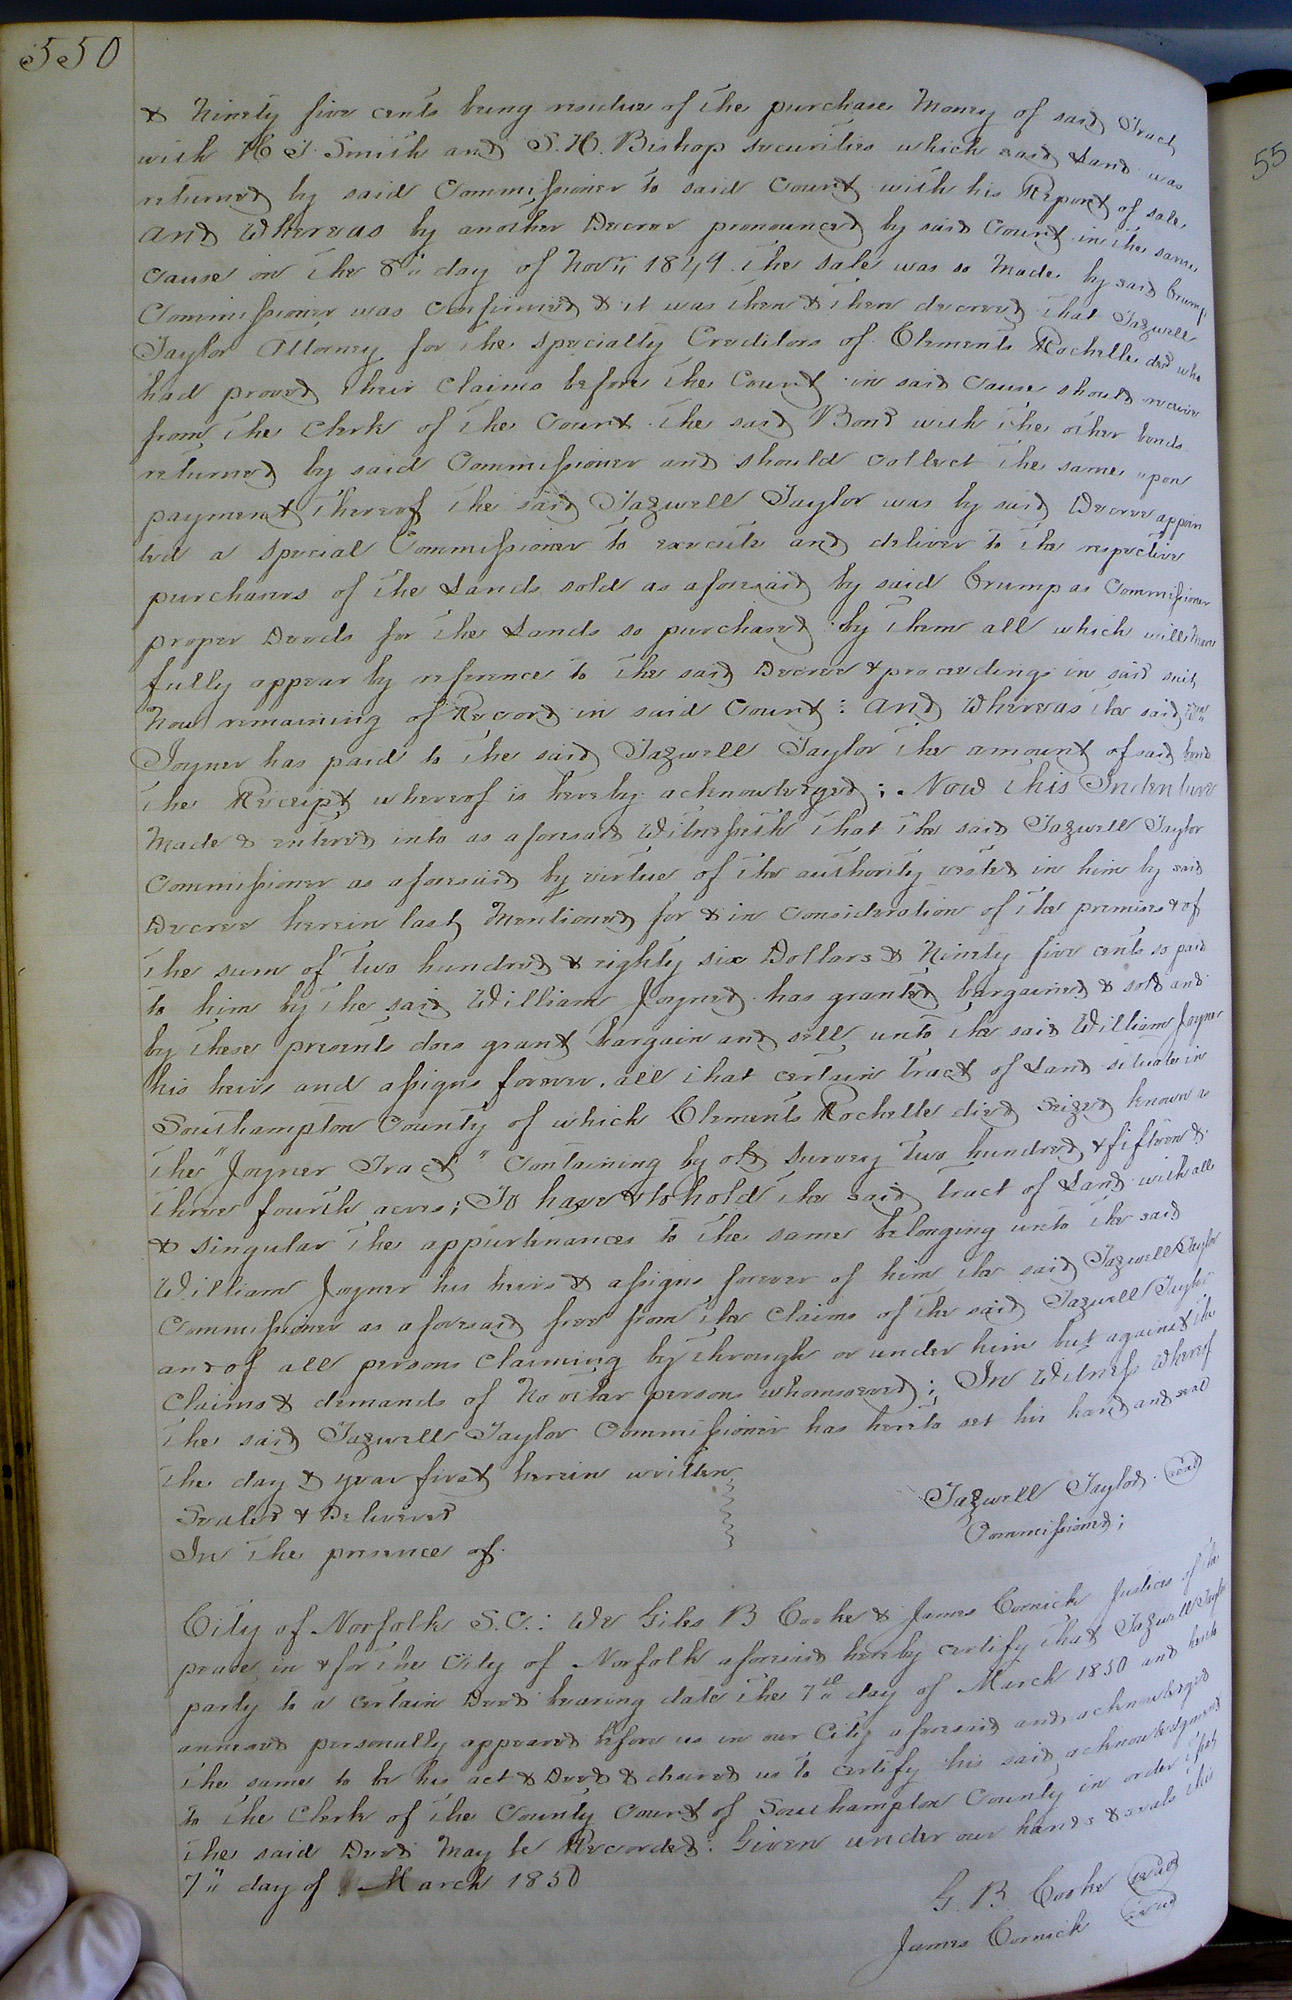 550
& Ninety five cents being residue of the purchase Money of said Tract
with H T. Smith and S. H. Bishop securities which said Land was
returned by said Commissioner to said Court with his Report of sale,
and Whereas by another Decree pronounced by said Court in the same
Cause on the 8th day of Novr 1849. the sale was so Made by said Crump
Commissioner was confirmed & it was then & then decreed that Tazwell
Taylor Attorney for the specialty Creditors of Clements Rochelle decd who
had proved their Claims before the Court in said Cause should receive
from the Clerk of the Court the said Bond with the other bonds
returned by said Commissioner and should collect the same upon
payment thereof the said Tazwell Taylor was by said Decree appoin
ted a special Commissioner to execute and deliver to the respective
purchasers of the Lands sold as aforesaid by said Crump as Commissioner
proper Deeds for the Lands so purchased by them all which will more
fully appear by reference to the said Decree & proceedings in said suit
Now remaining of Record in said Court: and Whereas the said Wm
Joyner has paid to the said Tazwell Taylor the amount of said bond
the Receipt whereof is hereby acknowledged; Now this Indenture
Made & entered into as aforesaid Witnesseth that the said Tazwell Taylor
Commissioner as aforesaid by virtue of the authority vested in him by said
Decree herein last Mentioned for & in Consideration of the premises & of
the sum of two hundred & eighty six Dollars & Ninety five cents so paid
to him by the said William Joyner has granted bargained & sold and
by these presents does grant bargain and sell unto the said William Joyner
his heirs and assigns forever, all that certain tract of Land situate in
Southampton County of which Clements Rochelle died seized known as
the "Joyner Tract" Containing by old Survey Two hundred & fifteen &
three fourth acres; To have & to hold the said tract of Land with all
& singular the appurtenances to the same belonging unto the said
William Joyner his heirs & assigns forever of him the said Tazwell Taylor
Commissioner as aforesaid free from the Claims of the said Tazwell Taylor
and of all persons Claiming by through or under him but against the
Claims & demands of No other persons whomsoever; In Witness Whereof
the said Tazwell Taylor Commissioner has hereto set his hand and seal
the day & year first herein written
Sealed & Delivered
Tazwell Taylor. seal
In the presence of
Commissioner;
City of Norfolk S. C.: We Giles B Cooke & James Cornick Justices of the
peace in & for the City of Norfolk aforesaid hereby certify that Tazwell Taylor
party to a certain Deed bearing date the 7th day of March 1850 and hereto
annexed personally appeared before us in our City aforesaid and acknowledged
the same to be his act & Deed & desired us to certify his said acknowledgment
to the Clerk of the County Court of Southampton County in order that
the said Deed May be Recorded: Given under our hands & seals this
7th day of March 1850
G. B. Cooke seal
James Cornick seal
55